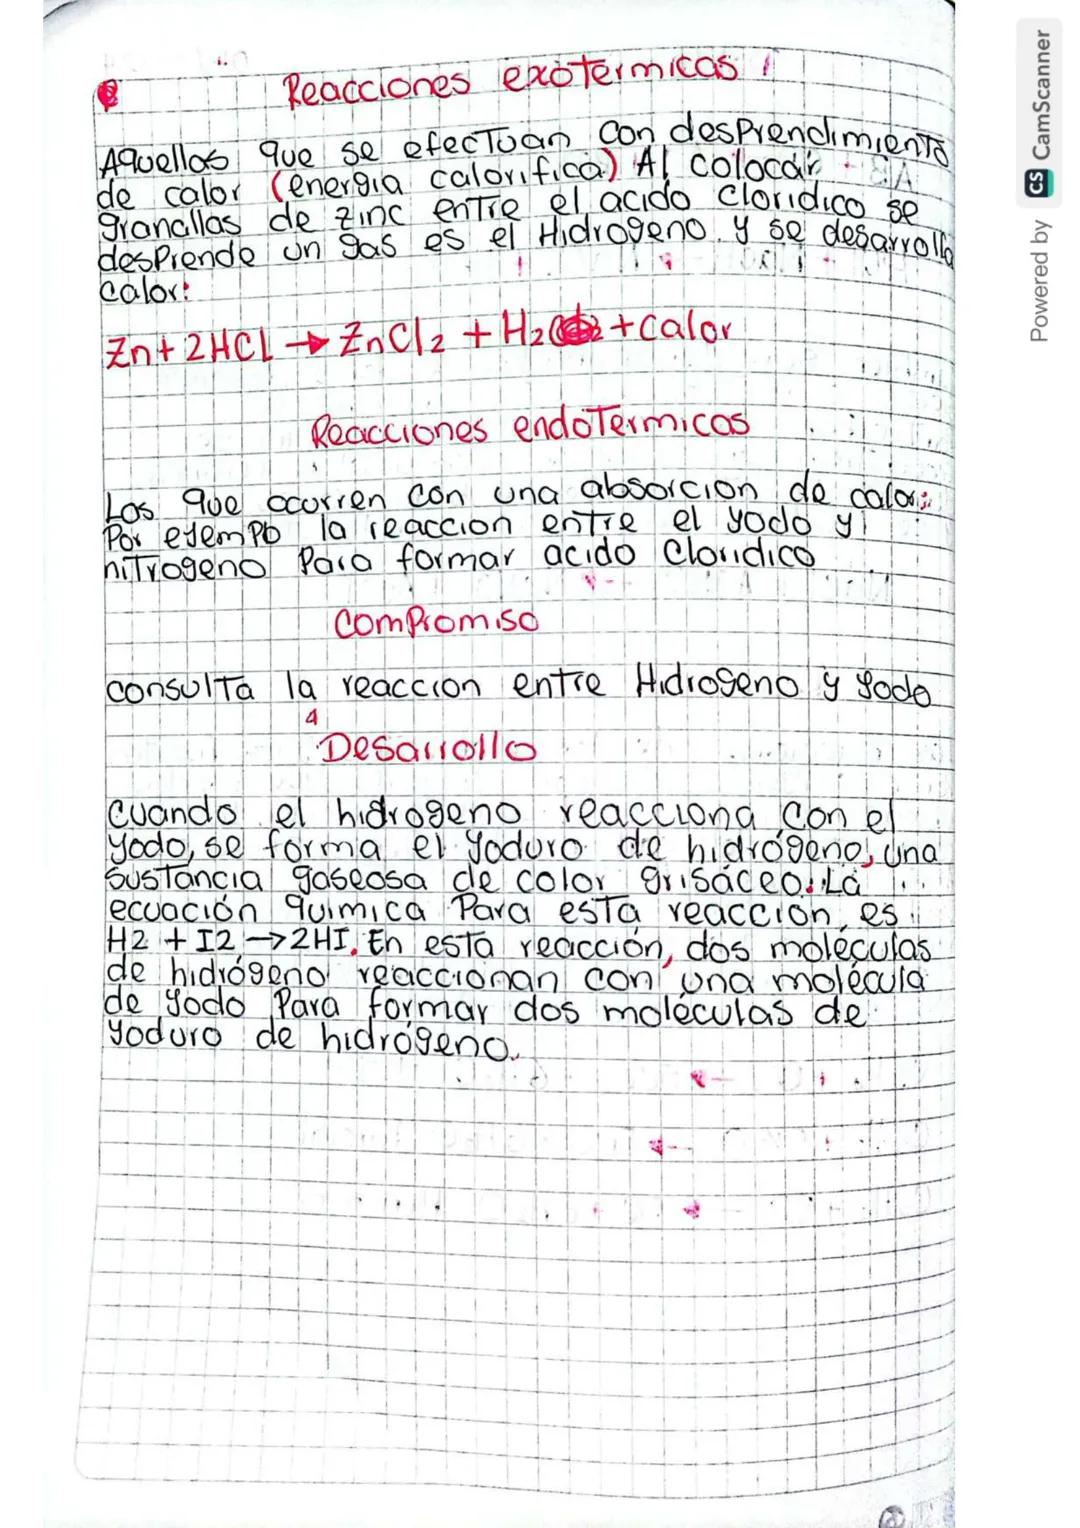 Reacciones exotermicas
Aquellas que se efectuan con desprendimiento
de calor (energia calorifica) Al colocar
granallas de zinc entre el acido cloridico se
desprende un gas es el Hidrogeno y se desarrolla
calor:
Zn + 2HCl → ZnCl2 + H2 + calor
Reacciones endotermicas
Las que ocurren con una absorcion de calor;
Por ejemplo la reaccion entre el yodo y
nitrogeno Para formar acido Cloridico
Compromiso
consulta la reaccion entre Hidrogeno y yodo
Desarrollo
Cuando el hidrogeno reacciona con el
yodo, se forma el yoduro de hidrógeno, una
sustancia gaseosa de color grisáceo. La
ecuación química Para esta reacción es
H2 + I2 → 2HI. En esta reacción, dos moléculas
de hidrógeno reaccionan con una molécula
de yodo Para formar dos moléculas de
yoduro de hidrógeno.
Powered by CS CamScanner